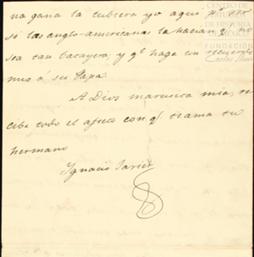 na gana la cubrera yo aquí
si las anglo-americanas la hacían
sea tan lacayera, y qe haga en
mio á su Papa.
A Dios maruxita mia, re
cibe todo el afecto con qe te ama tu
hermano
Ignacio Javier